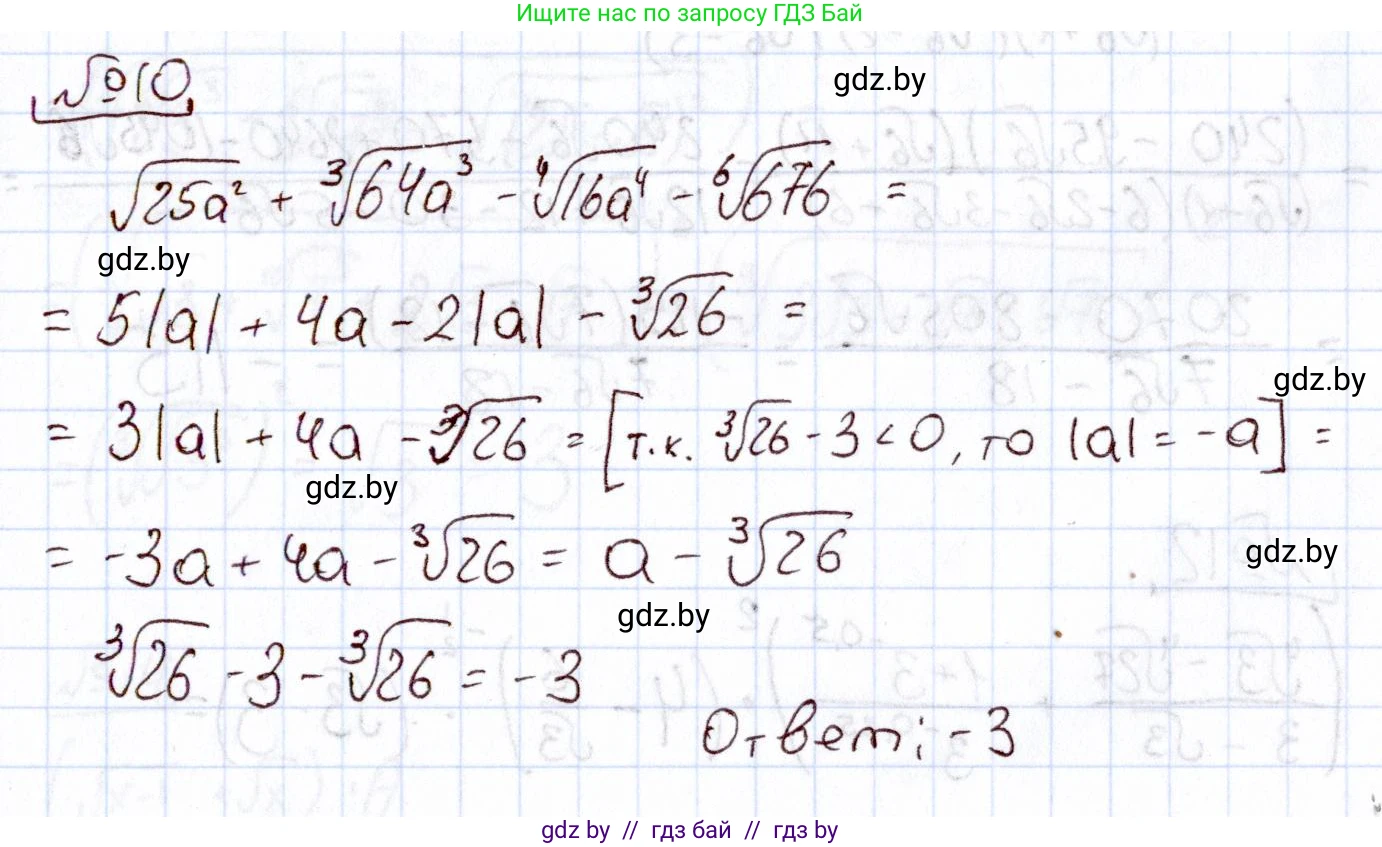 Ищите нас по запросу ГДЗ Бай
№10
gdz.by
√25a² + ³√64a³ - ⁴√16a⁴ - ⁶√676 =
gdz.by
= 5|a| + 4a - 2|a| - ³√26 =
gdz.by
= 3|a| + 4a - ³√26 = [т.к. ³√26 - 3 < 0, то |a| = -a] =
gdz.by
= -3a + 4a - ³√26 = a - ³√26
gdz.by
gdz.by
³√26 - 3 - ³√26 = -3
Ответ: -3
gdz by // гдз бай // гдз by